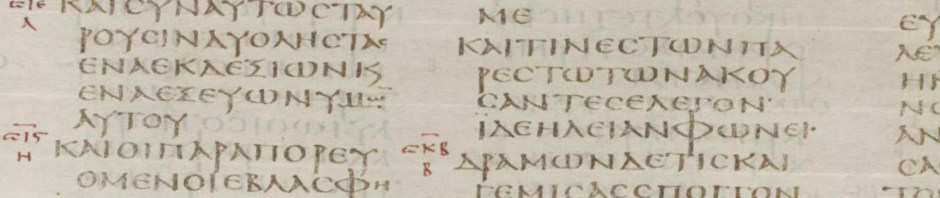 ϹΙΕ
Α
ΚΑΙϹΥΝΑΥΤΩϹΤΑΥ
ΡΟΥϹΙΝΔΥΟΛΗϹΤΑϹ
ΕΝΑΕΚΔΕΞΙΩΝΚϗ
ΕΝΑΕΞΕΥΩΝΥΜΩ̅
ΑΥΤΟΥ
ϹΙϚ
Η
ΚΑΙΟΙΠΑΡΑΠΟΡΕΥ
ΟΜΕΝΟΙΕΒΛΑϹΦΗ
ΜΕ
ΚΑΙΤΙΝΕϹΤΩΝΠΑ
ΡΕϹΤΩΤΩΝΑΚΟΥ
ϹΑΝΤΕϹΕΛΕΓΟΝ·
ΪΔΕΗΛΕΙΑΝΦΩΝΕΙ·
ϹΚΒ
Β
ΔΡΑΜΩΝΔΕΤΙϹΚΑΙ
ΓΕΜΙϹΑϹϹΠΟΓΓΟΝ
ΕΥ
ΗΝ
ΝΟ
ΑΝ
ϹΑ